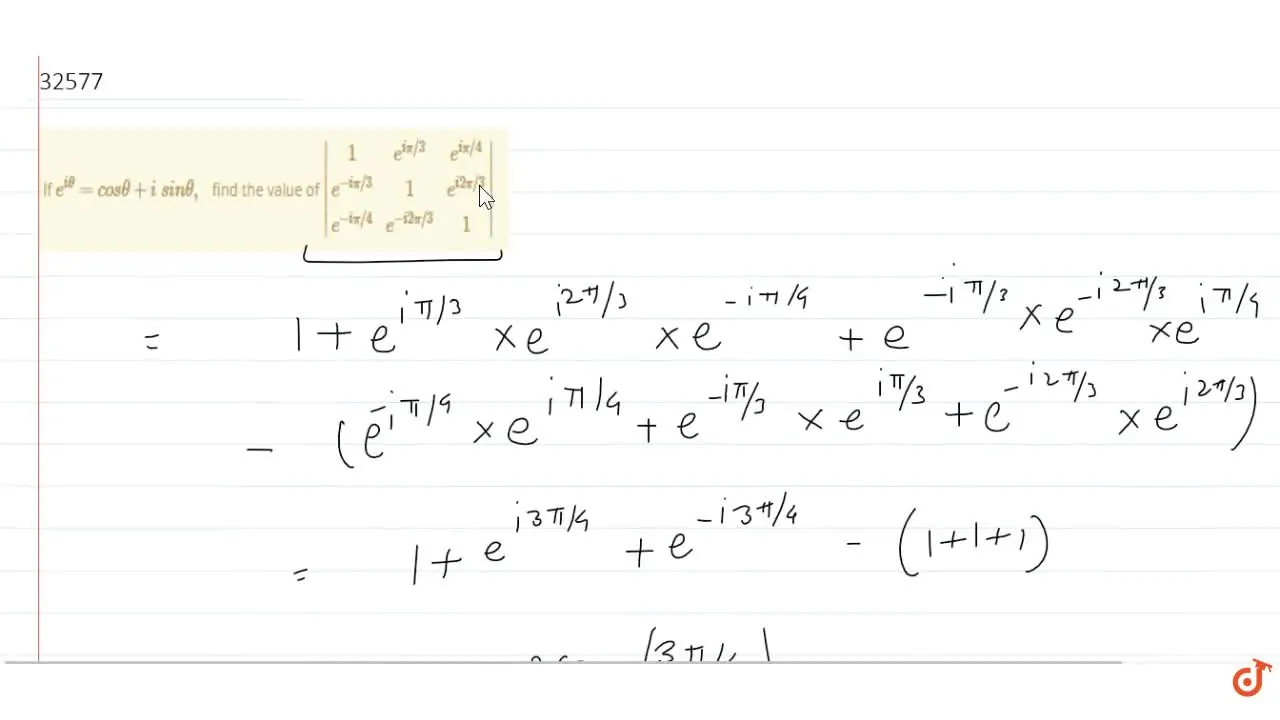 32577
If e^{iθ} = cosθ + i sinθ, find the value of | 1 e^{iπ/3} e^{iπ/4} |
| e^{-iπ/3} 1 e^{i2π/3} |
| e^{-iπ/4} e^{-i2π/3} 1 |
= 1 + e^{iπ/3} × e^{i2π/3} × e^{-iπ/4} + e^{-iπ/3} × e^{-i2π/3} × e^{iπ/4}
- (e^{-iπ/4} × e^{iπ/4} + e^{-iπ/3} × e^{iπ/3} + e^{-i2π/3} × e^{i2π/3})
= 1 + e^{i3π/4} + e^{-i3π/4} - (1+1+1)
(3π/4)